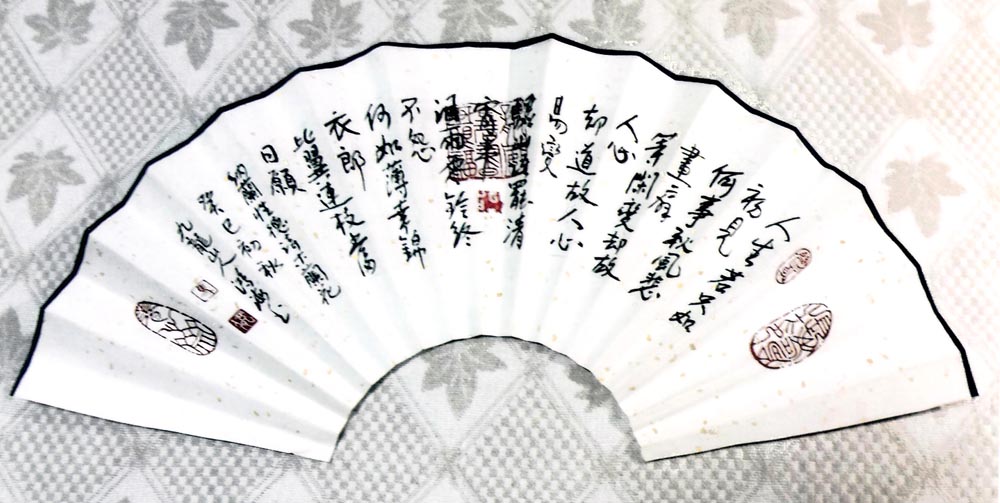 人生若只如
初見
何事秋風悲
畫扇
等閑變却故
人心
却道故人心
易變
驪山語罷清
宵半
淚雨霖鈴終
不怨
何如薄幸錦
衣郎
比翼連枝當
日願
納蘭性德詞木蘭花
癸巳初秋
九龍